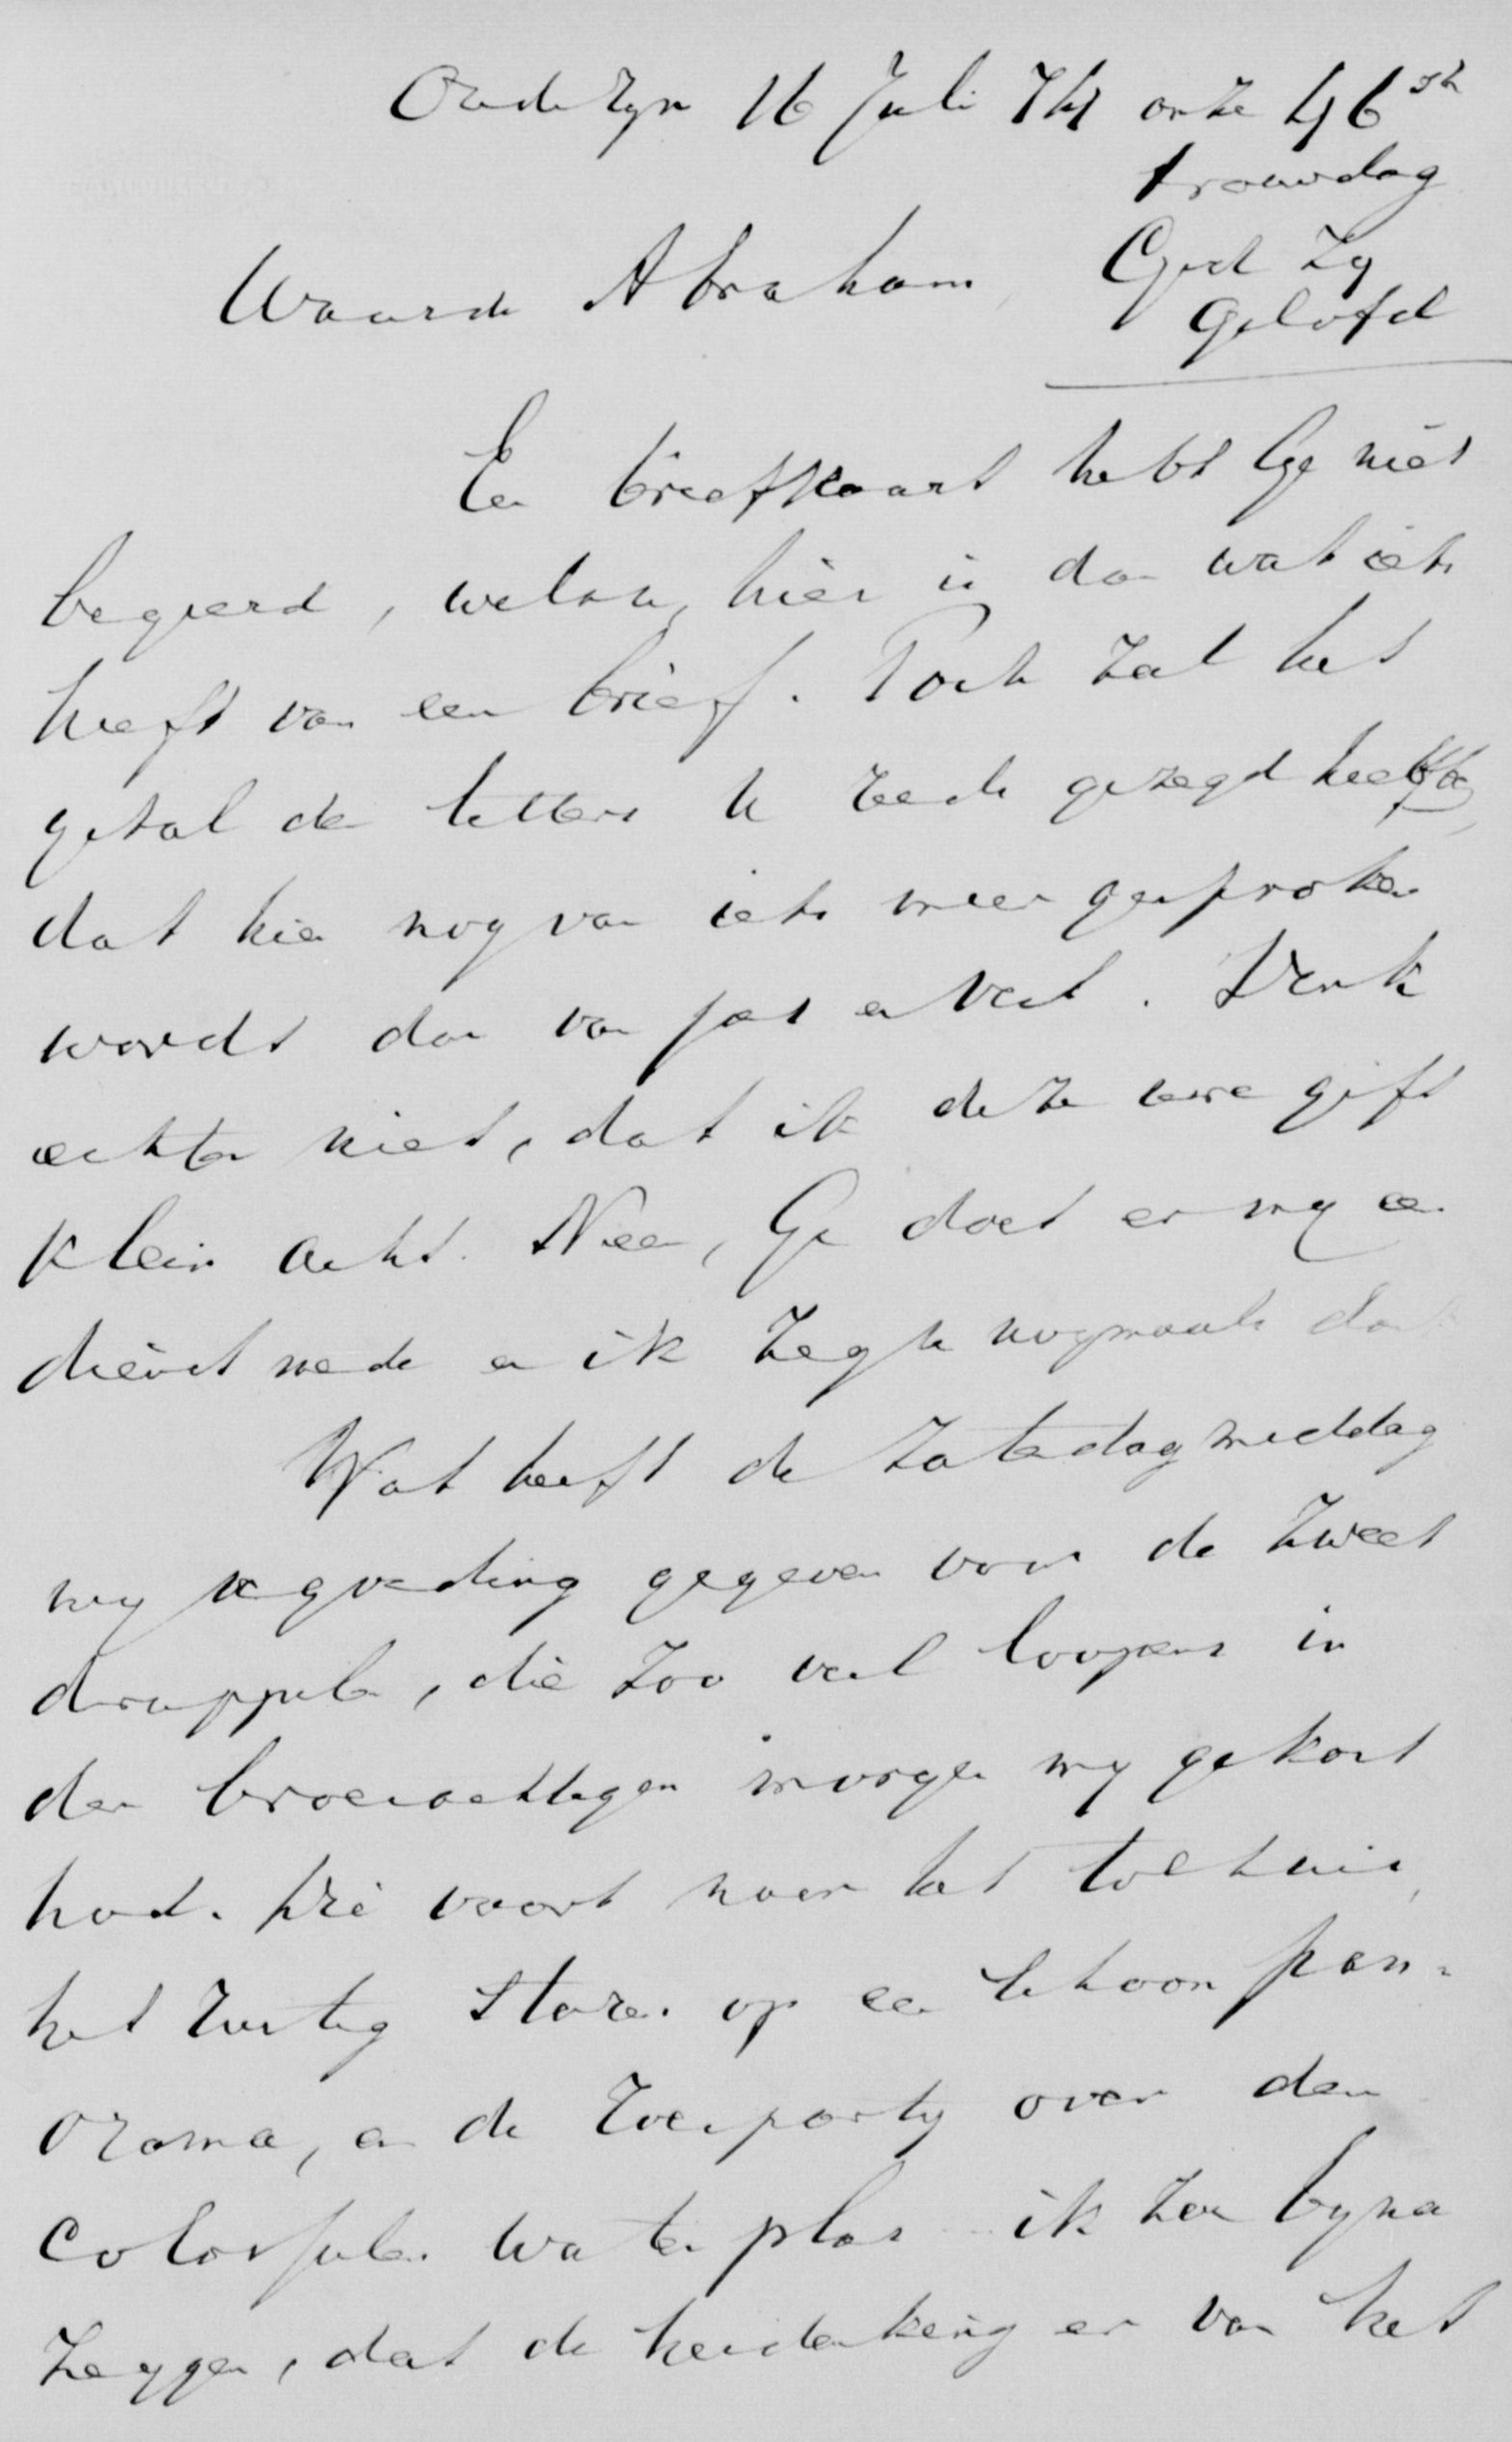 Oude Ryn 16 Juli 74 onze 46ste
trouwdag
Waarde Abraham, God zy
Gelofd
Een briefkaart hebt Ge niet
begeerd, welnu, hier is dan wat iets
heeft van een brief. Toch zal het
getal der letters U reeds gezegd hebben,
dat hier nog van iets meer gesproken
wordt dan van jas en vest. Denk
echter niet, dat ik deze uwe gift
klein acht. Neen, Ge doet er my een
dienst mede en ik zeg U nogmaals dank
Wat heeft de Zaterdag middag
my vergoeding gegeven voor de zweet
druppels, die zoo veel loopens in
den broeiachtigen morgen my gekost
had. Die vaart naar het tolhuis,
het rustig staren op een schoon pan-
orama, en de over den
colossalen waterplas ik zou byna
zeggen, dat de herdenking er van het